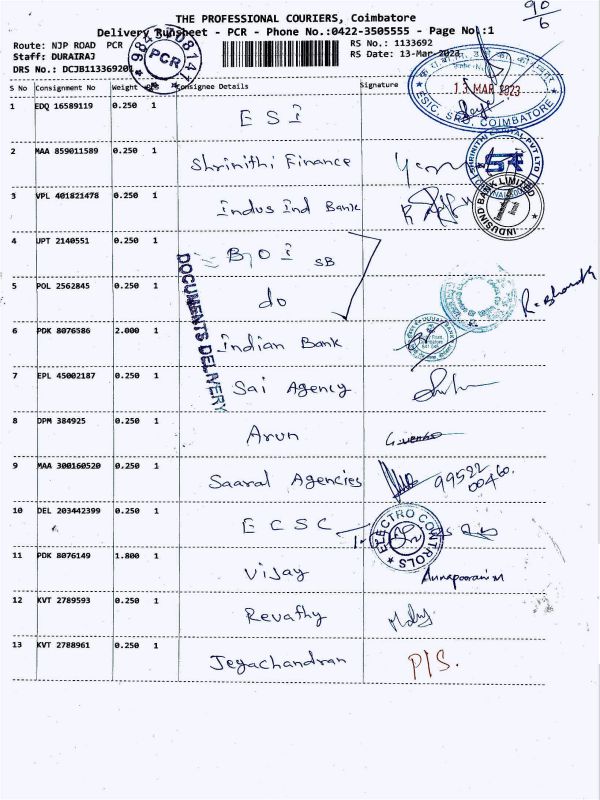 90/6
THE PROFESSIONAL COURIERS, Coimbatore
Delivery Runsheet - PCR - Phone No.:0422-3505555 - Page No.:1
Route: NJP ROAD PCR RS No.: 1133692
Staff: DURAIRAJ RS Date: 13-Mar-2023
DRS No.: DCJB113369201
PCR
13 MAR 2023
ESIC, SRO, COIMBATORE
S No Consignment No Weight Consignee Details Signature
1 EDQ 16589119 0.250 1 ESI
2 MAA 859011589 0.250 1 Shrinithi Finance
SHRINITHI CAPITAL PVT LTD
3 VPL 401821478 0.250 1 Indus Ind Bank
INDUSIND BANK LIMITED
4 UPT 2140551 0.250 1 BOI SB
5 POL 2562845 0.250 1 do
DOCUMENTS DELIVERY
6 PDK 8076586 2.000 1 Indian Bank
7 EPL 45002187 0.250 1 Sai Agency
8 DPM 384925 0.250 1 Arun
9 MAA 300160520 0.250 1 Saaral Agencies 99522 00460
10 DEL 203442399 0.250 1 ECSC
ELECTRO CONTROLS
11 PDK 8076149 1.800 1 Vijay Annapoorani M
12 KVT 2789593 0.250 1 Revathy
13 KVT 2788961 0.250 1 Jegachandran P/S.